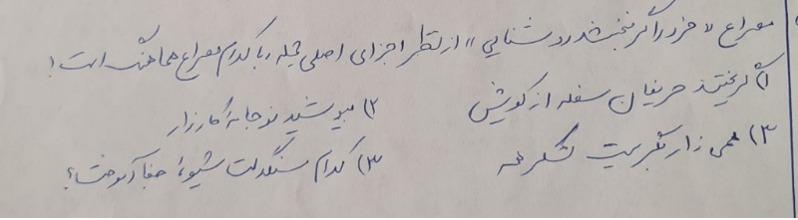 مصراع «خرد را گر نبخشد روشنایی» از نظر اجزای اصلی جمله، با کدام مصراع هماهنگ است؟
۱) گریختند حریفان سفله از کویش ۲) بپوشید نو جامهٔ کارزار
۳) همی زار بگریست لشکر همه ۳) کدام سنگدلت شیوهٔ جفا آموخت؟